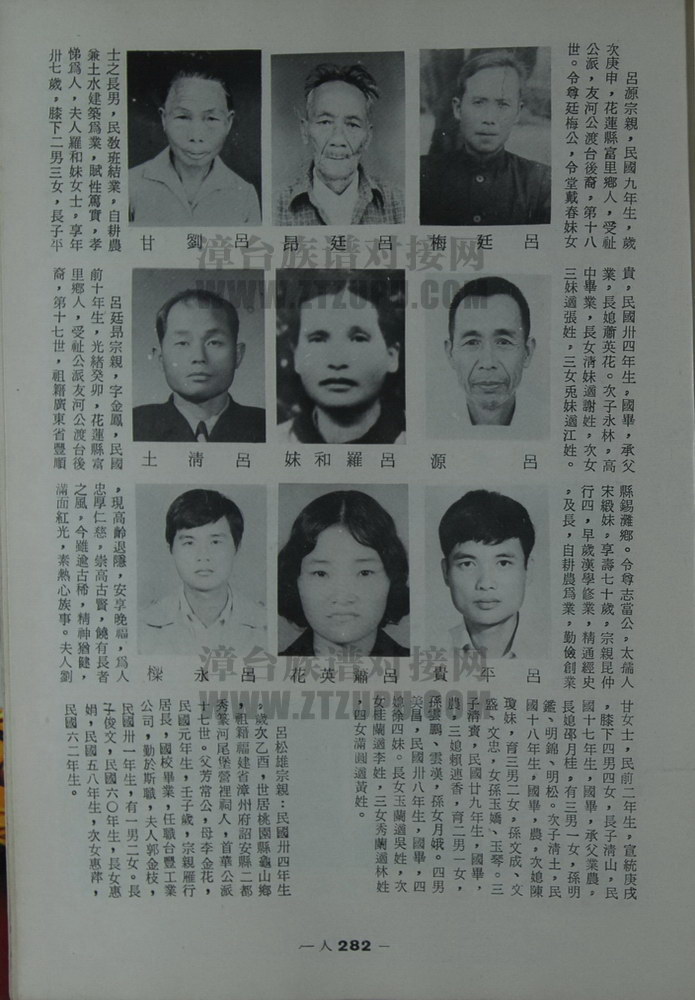 呂源宗親，民國九年生，歲
次庚申，花蓮縣富里鄉人，受祉
公派，友河公渡台後裔，第十八
世。令尊廷梅公，令堂戴春妹女
呂廷梅
呂廷昂
呂劉甘
士之長男，民教班結業，自耕農
兼土水建築爲業，賦性篤實，孝
悌爲人，夫人羅和妹女士，享年
卅七歲，膝下二男三女，長子平
貴，民國卅四年生，國畢，承父
業，長媳蕭英花。次子永林，高
中畢業，長女清妹適謝姓，次女
三妹適張姓，三女兎妹適江姓。
呂源
呂羅和妹
呂清土
呂廷昂宗親，字金鳳，民國
前十年生，光緒癸卯，花蓮縣富
里鄉人，受祉公派友河公渡台後
裔，第十七世，祖籍廣東省豐順
縣錫灘鄉。令尊志當公，太孺人
宋緞妹，享壽七十歲，宗親昆仲
行四，早歲漢學修業，精通經史
，及長，自耕農爲業，勤儉創業
呂平貴
呂蕭英花
呂永樑
，現高齡退隱，安享晚福，爲人
忠厚仁慈，崇高古賢，饒有長者
之風，今雖逾古稀，精神猶健，
滿面紅光，素熱心族事。夫人劉
甘女士，民前二年生，宣統庚戌
，膝下四男四女，長子清山，民
國十七年生，國畢，承父業農，
長媳邵月桂，有三男一女，孫明
鑑、明錦、明松。次子清土，民
國十八年生，國畢，農，次媳陳
瓊妹，育三男二女，孫文成、文
盛、文忠，女孫玉嬌、玉琴。三
子清賓，民國廿九年生，國畢，
農，三媳賴連香，育二男一女，
孫雲鵬、雲漢，孫女月娥。四男
美昌，民國卅八年生，國畢，四
媳徐四妹。長女玉蘭適吳姓，次
女桂蘭適李姓，三女秀蘭適林姓
，四女滿圓適黃姓。
呂松雄宗親：民國卅四年生
，歲次乙酉，世居桃園縣龜山鄉
，祖籍福建省漳州府詔安縣二都
秀篆河尾堡營裡祠人，首華公派
十七世。父芳常公，母李金花，
民國元年生，壬子歲，宗親雁行
居長，國校畢業，任職台豐工業
公司，勤於斯職，夫人郭金枝，
民國卅一年生，有一男二女。長
子俊文，民國六〇年生，長女惠
娟，民國五八年生，次女惠萍，
民國六二年生。
—人282—
漳台族谱对接网
WWW.ZTZUPU.COM
漳台族谱对接网
WWW.ZTZUPU.COM